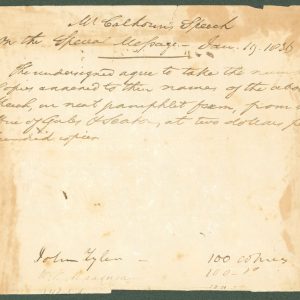 Mr Calhoun's Speech
On the Special Message - Jan. 19. 1836
The undersigned agree to take the num
opies annexed to their names of the abo
peech in neat pamphlet form, from
fice of Gales & Seaton, at two dollars p
undred copies
John Tyler - 100 copies
100 - do